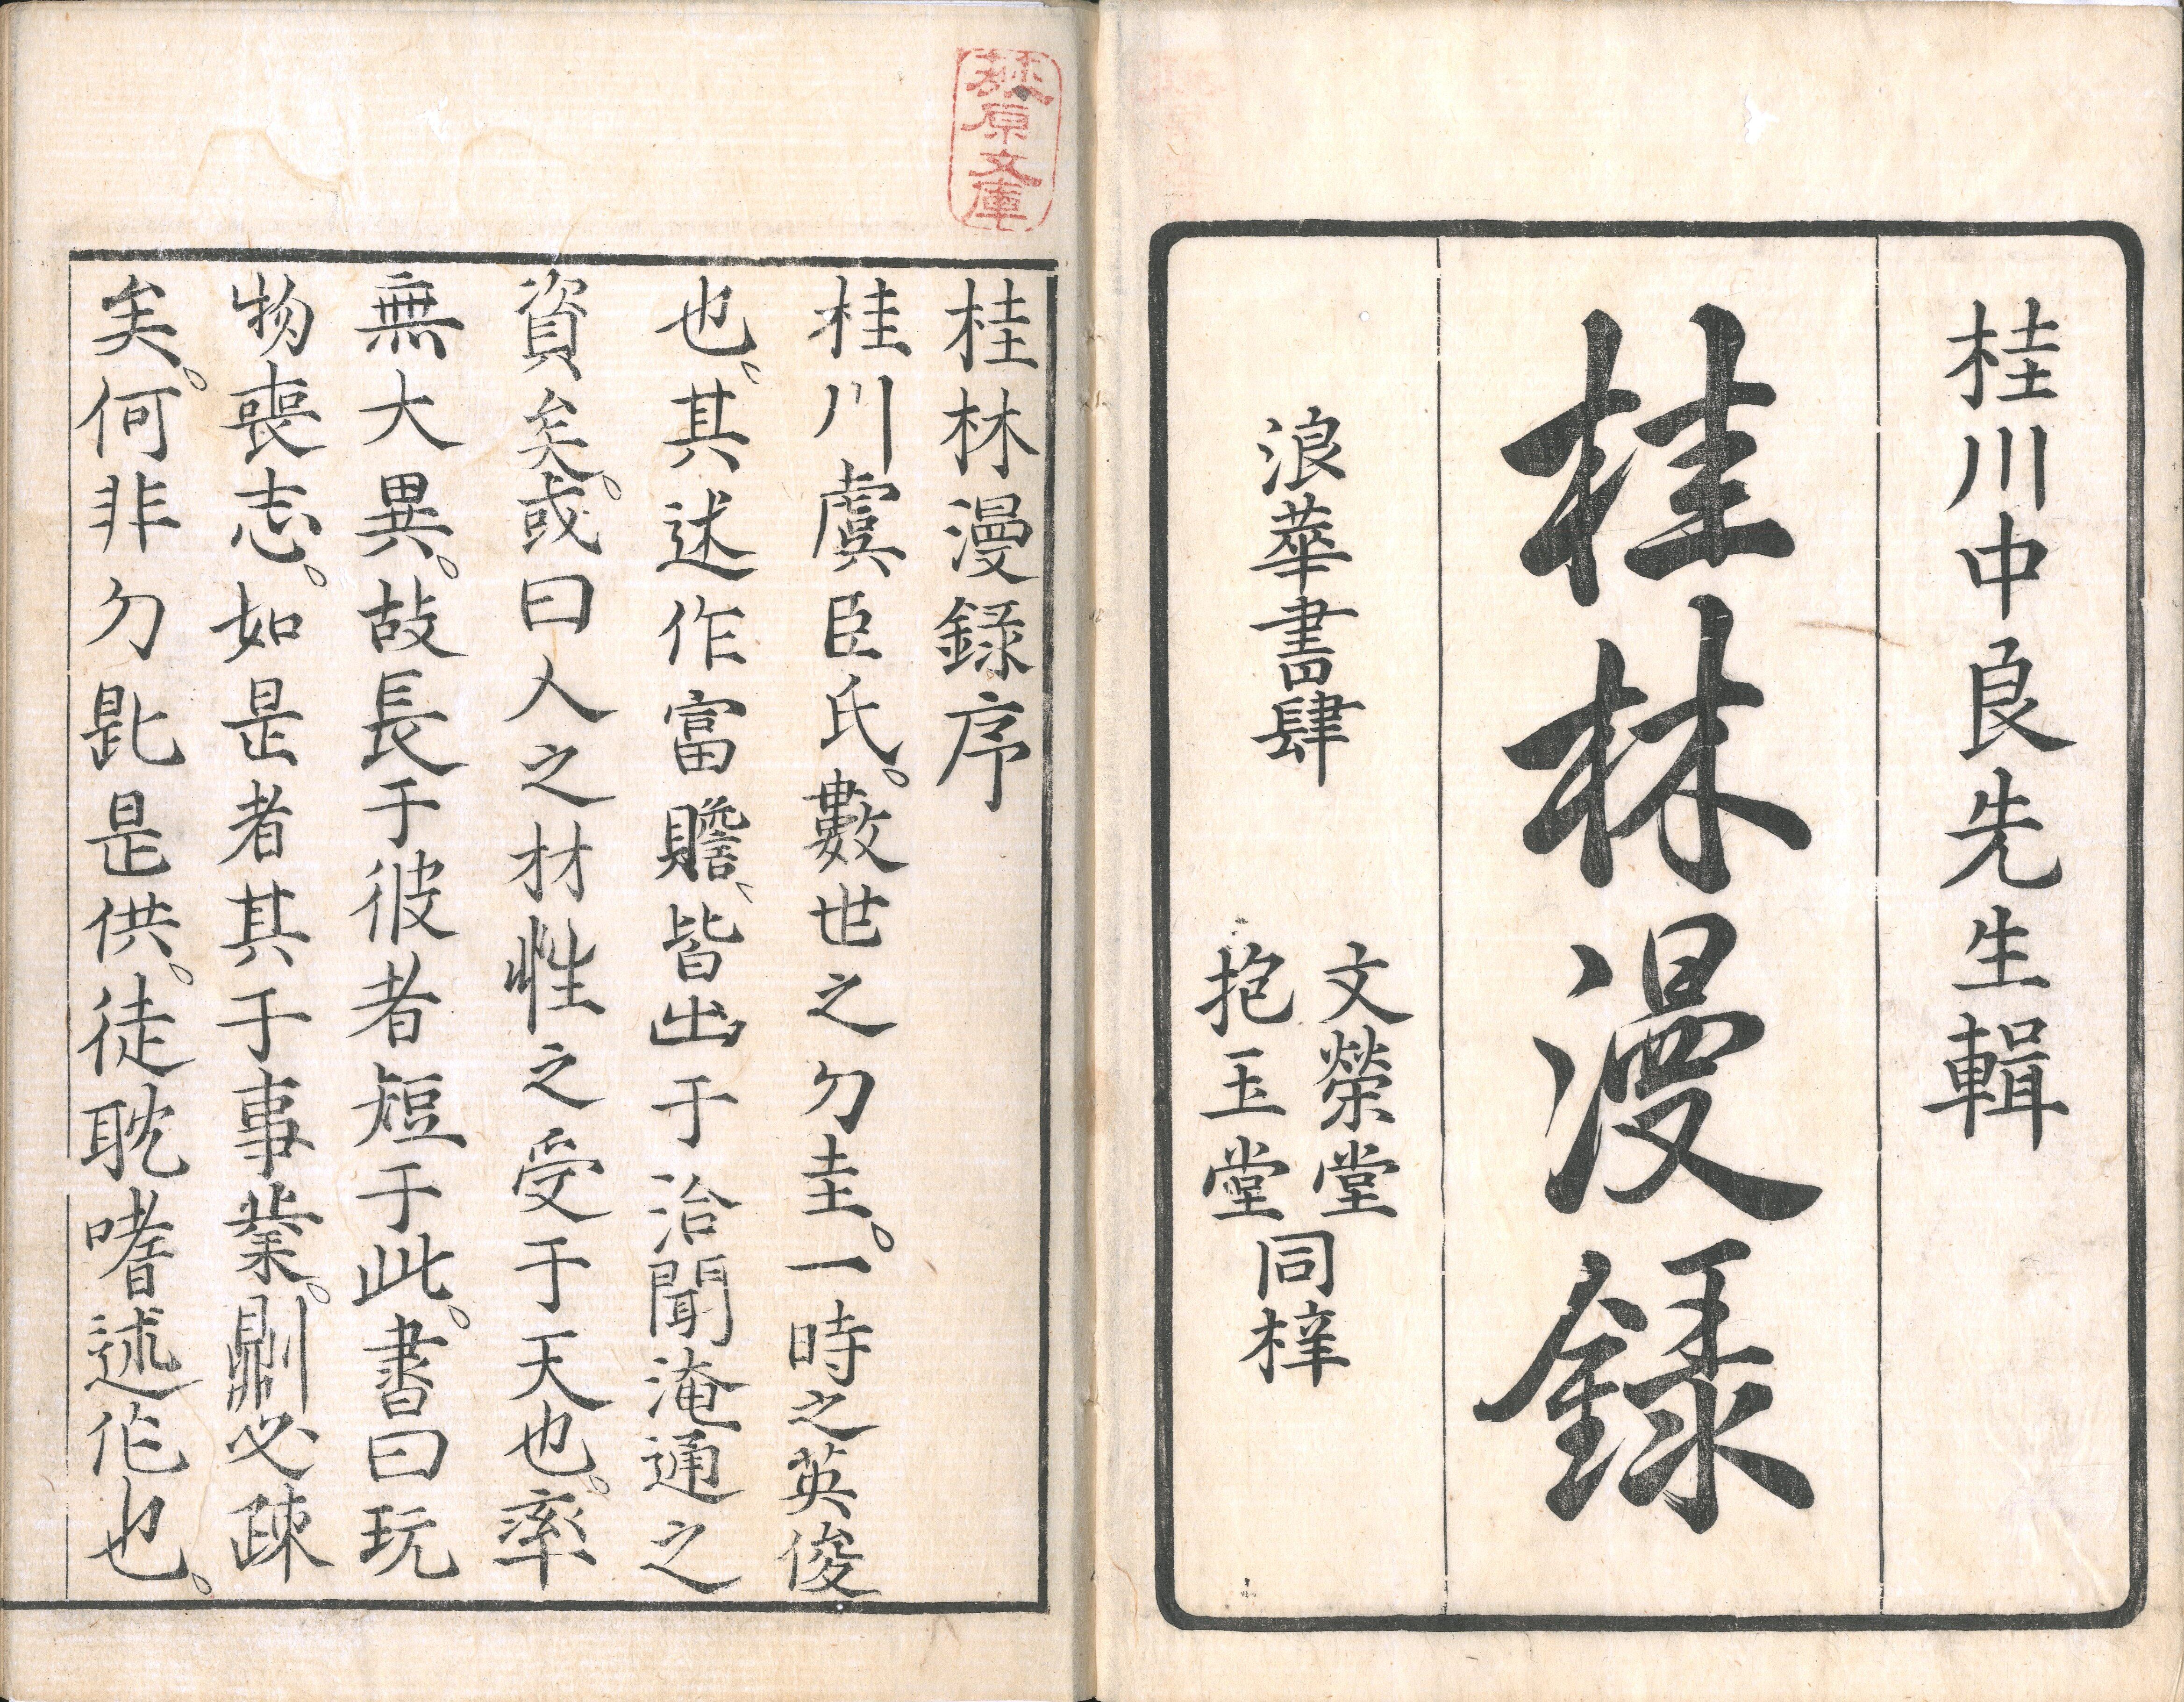 桂川中良先生輯
桂林漫録
浪華書肆
文榮堂
抱玉堂
同梓
原文庫
桂林漫録序
桂川虞臣氏。數世之刀圭。一時之英俊
也、其述作富贍、皆出于洽聞淹通之
資矣。或曰人之材性之受于天也。率
無大異。故長于彼者短于此。書曰玩
物喪志。如是者其于事業。則必疎
矣。何非刀匙是供。徒耽嗜述作也。